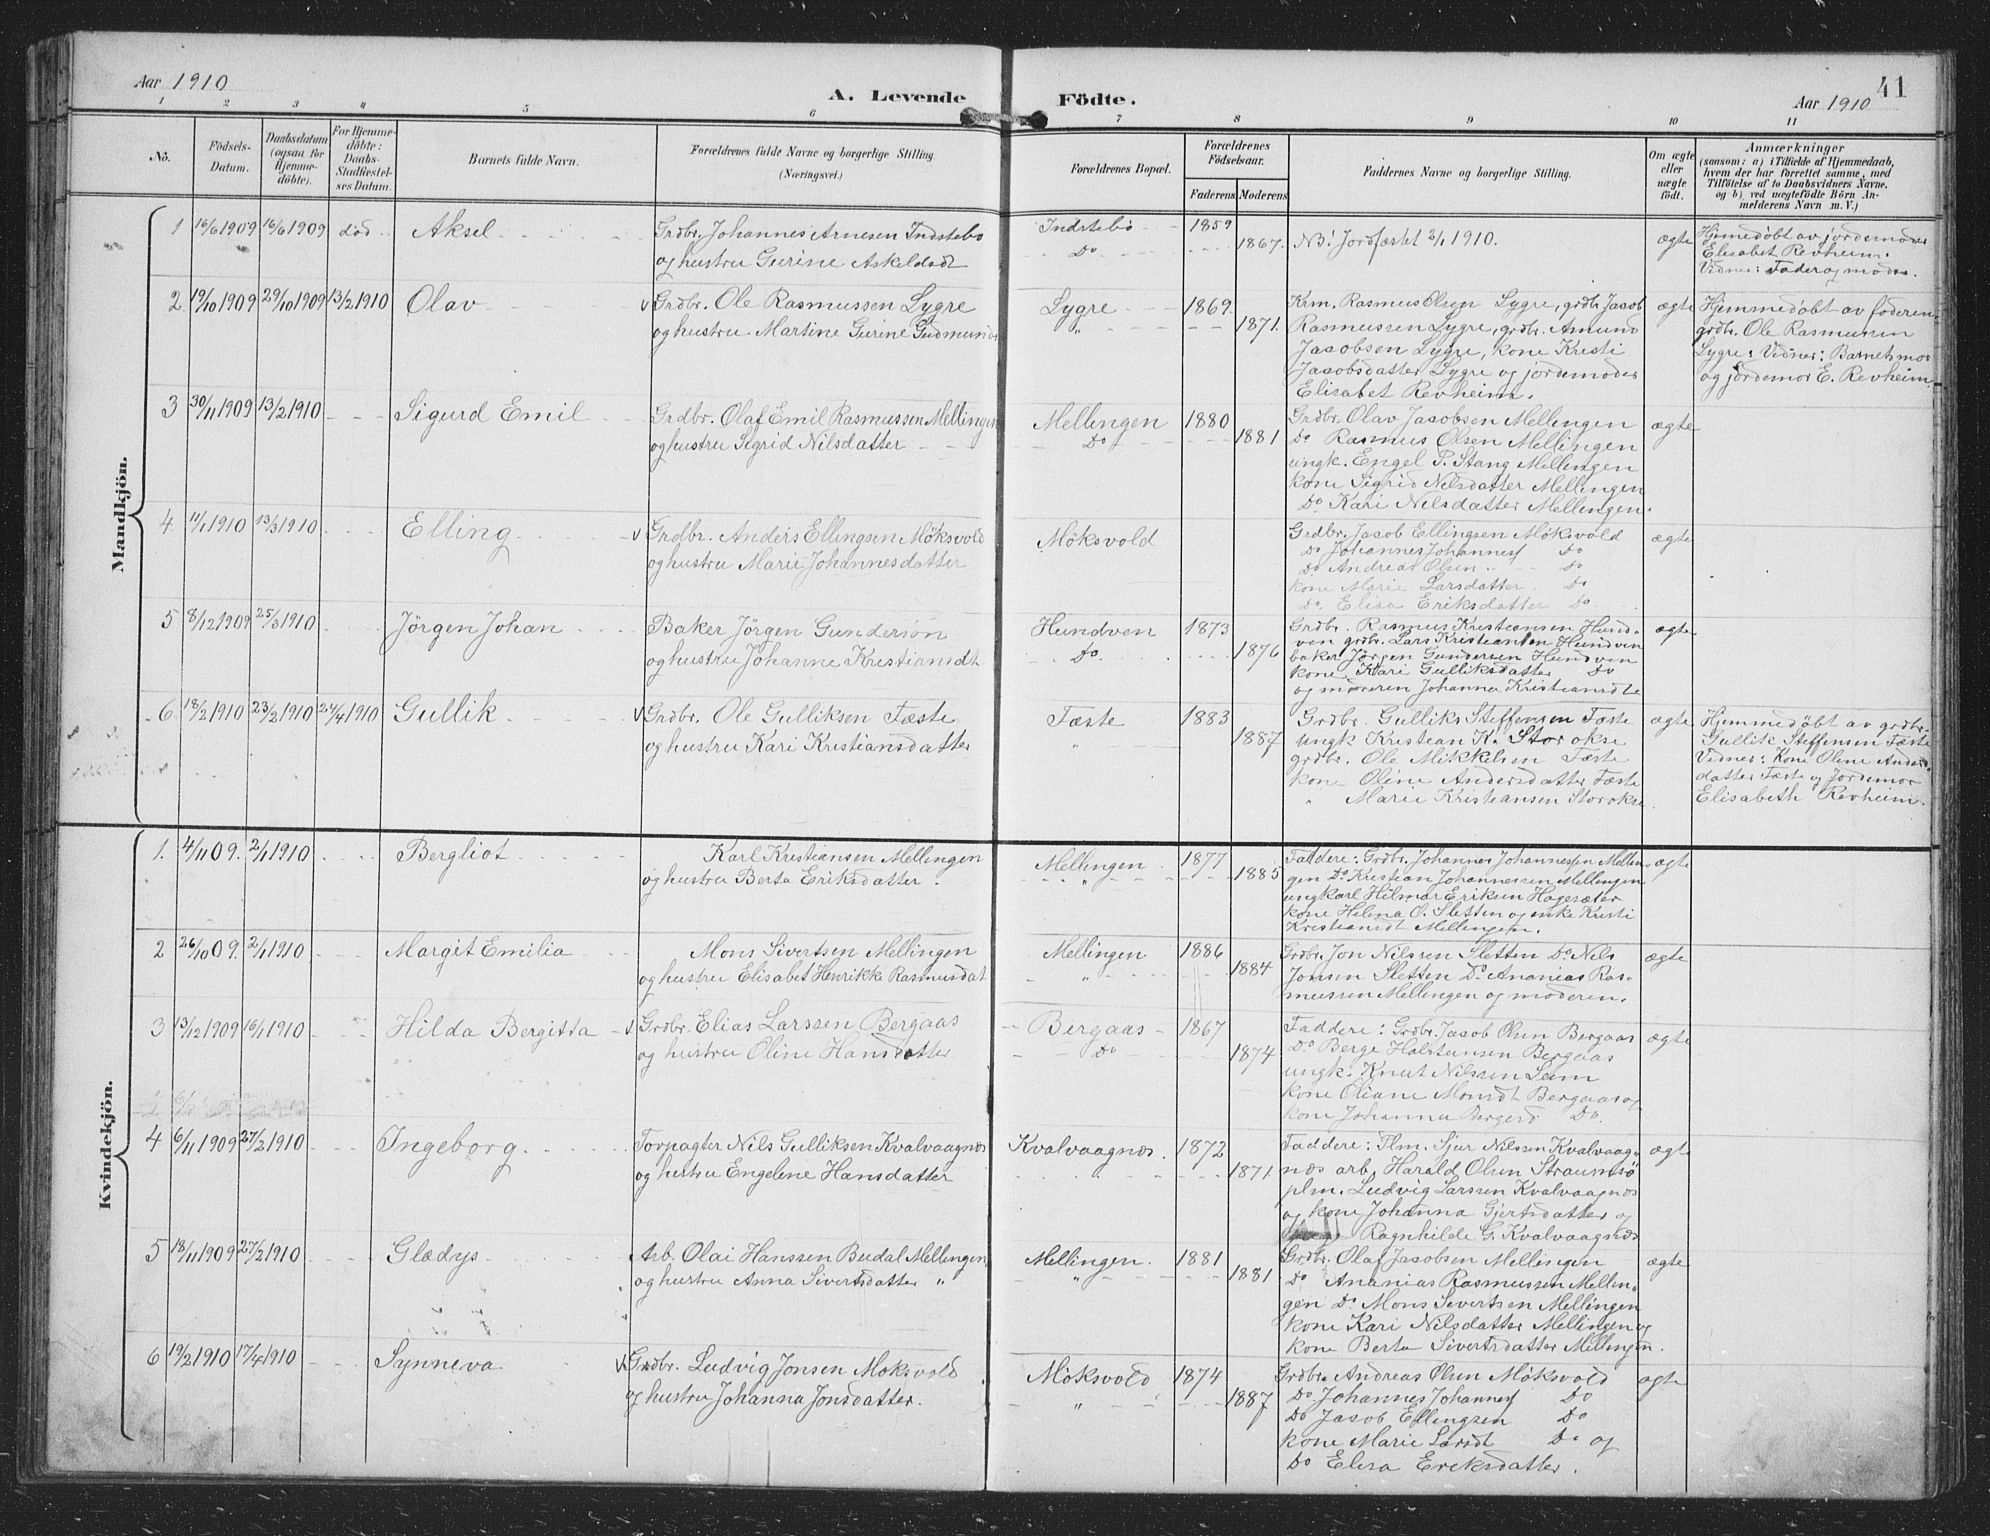 Aar 1910
A. Levende Födte.
41
Aar 1910
1 2 3 4 5 6 7 8 9 10 11
No.
Födsels-Datum.
Daabsdatum (ogsaa for Hjemmedöbte).
For Hjemmedöbte: Daabs-Stadfestelses Datum.
Barnets fulde Navn.
Forældrenes fulde Navne og borgerlige Stilling. (Næringsvei.)
Forældrenes Bopæl.
Forældrenes Födselsaar.
Faderens Moderens
Faddernes Navne og borgerlige Stilling.
Om ægte eller uægte födt.
Anmærkninger
(saasom: a) i Tilfælde af Hjemmedaab,
hvem der har forrettet samme, med
Tilföielse af to Daabsvidners Navne,
og b) ved uægtefödte Börn An-
melderens Navn m. V.)
Mandkjön.
1 16/6 1909 16/6 1909 död Aksel
Grdbr. Johannes Arnesen Indstebö
og hustru Gurine Askeldsdt
Indstebö
Do
1859
1867.
NB! Jordfæstet 2/1 1910.
ægte
Hjemedöbt av jordemoder
Elisabet Revheim.
Vidner: Fader og moder.
2 19/10 1909 29/10 1909 13/2 1910 Olav
Grdbr. Ole Rasmussen Lygre
og hustru Martine Gurine Gudmunds
Lygre
"
1869.
1871.
Krm. Rasmus Olsen Lygre, grdbr. Jacob
Rasmussen Lygre, grdbr. Amund
Jacobsen Lygre, kone Kristi
Jacobsdatter Lygre og jordemoder
Elisabet Revheim.
ægte
Hjemmedöbt av faderen
grdbr. Ole Rasmussen
Lygre; Vidner: Barnets mor
og jordemor E. Revheim.
3 30/11 1909 13/2 1910 Sigurd Emil
Grdbr. Olaf Emil Rasmussen Mellingen
og hustru Sigrid Nilsdatter
Mellingen
Do
1880
1881
Grdbr. Olav Jacobsen Mellingen
Do Rasmus Olsen Mellingen
ungk. Engel P. Stang Mellingen
kone Sigrid Nilsdatter Mellingen
Do Kari Nilsdatter Mellingen.
ægte
4 11/1 1910 13/3 1910 Elling
Grdbr. Anders Ellingsen Möksvold
og hustru Marie Johannesdatter
Möksvold
Grdbr. Jacob Ellingsen Möksvold
Do Johannes Johannes Do
Do Andreas Olsen Do
kone Marie Larsdatter Do
Do. Elisa Eriksdatter Do
ægte
5 8/12 1909 25/3 1910 Jörgen Johan
Baker Jörgen Gundersön
og hustru Johanne Kristiansdt
Hundven
Do.
1873
1876
Grdbr. Rasmus Kristiansen Hund-
ven grdbr. Lars Kristiansen Hundven
baker Jörgen Gundersen Hundven
kone Kari Gulliksdatter Do
og moderen Johanna Kristiansdt
ægte
6 18/2 1910 23/2 1910 24/4 1910 Gullik
Grdbr. Ole Gulliksen Tæste
og hustru Kari Kristiansdatter
Tæste
"
1883
1887
Grdbr. Gullik Steffensen Tæste
ungk Kristian K. Storokse
grdbr. Ole Mikkelsen Tæste
kone Oline Andersdatter Tæste
" Marie Kristiansen Storokse
ægte
Hjemmedöbt av grdbr.
Gullik Steffensen Tæste
Vidner: Kone Oline Anders-
datter Tæste og Jordemor
Elisabeth Revheim.
Kvindekjön.
1. 4/11 09. 2/1 1910 Bergliot
Karl Kristiansen Mellingen
og hustru Berta Eriksdatter.
Mellingen
"
1877
1885
Faddere: Grdbr. Johannes Johannessen Mellin-
gen Do Kristian Johannessen Mellingen
ungkarl Hilmar Eriksen Hagesæter
kone Helena O. Sletten og enke Kristi
Kristiansdt Mellingen.
ægte
2 26/10 09. 2/1 1910 Margit Emilia
Mons Sivertsen Mellingen
og hustru Elisabet Henrikke Rasmusdat
Mellingen
"
1886
1884
Grdbr. Jon Nilssen Sletten Do Nils
Jonsen Sletten Do Ananias Ras-
mussen Mellingen og moderen.
ægte
3 13/12 1909 16/1 1910 Hilda Bergitta
Grdbr. Elias Larssen Bergaas
og hustru Oline Hansdatter
Bergaas
Do
1867
1874
Faddere: Grdbr. Jacob Olsen Bergaas
Do Berge Holstensen Bergaas
ungk. Knut Nilssen Leim
kone Oliane Monsdt Bergaas og
kone Johanna Bergesd Do.
ægte
4 6/11 1909 27/2 1910 Ingeborg
Forpagter Nils Gulliksen Kvalvaagnes
og hustru Engeline Hansdatter
Kvalvaagnes.
1872
1871
Faddere: Flm. Sjur Nilssen Kvalvaag-
nes arb. Harald Olsen Straumsö
plm. Ludvig Larssen Kvalvaagnes
og kone Johanna Gjertsdatter og
Ragnhilde G. Kvalvaagnes
ægte
5 18/11 1909 27/2 1910 Glædys
Arb. Olai Hanssen Budal Mellingen
og hustru Anna Sivertsdatter "
Mellingen.
"
1881
1881
Grdbr. Olaf Jacobsen Mellingen
Do Ananias Rasmussen Mellin-
gen Do Mons Sivertsen Mellingen
kone Kari Nilsdatter Mellingen og
kone Berta Sivertsdatter Mellingen.
ægte
6 19/2 1910 17/4 1910 Synneva
Grdbr. Ludvig Jonsen Möksvold
og hustru Johanna Jonsdatter.
Möksvold
"
1874
1887
Grdbr. Andreas Olsen Möksvold
Do Johannes Johannes Do
Do Jacob Ellingsen Do
kone Marie Larsdt Do og
Do Elisa Eriksdatter.
ægte